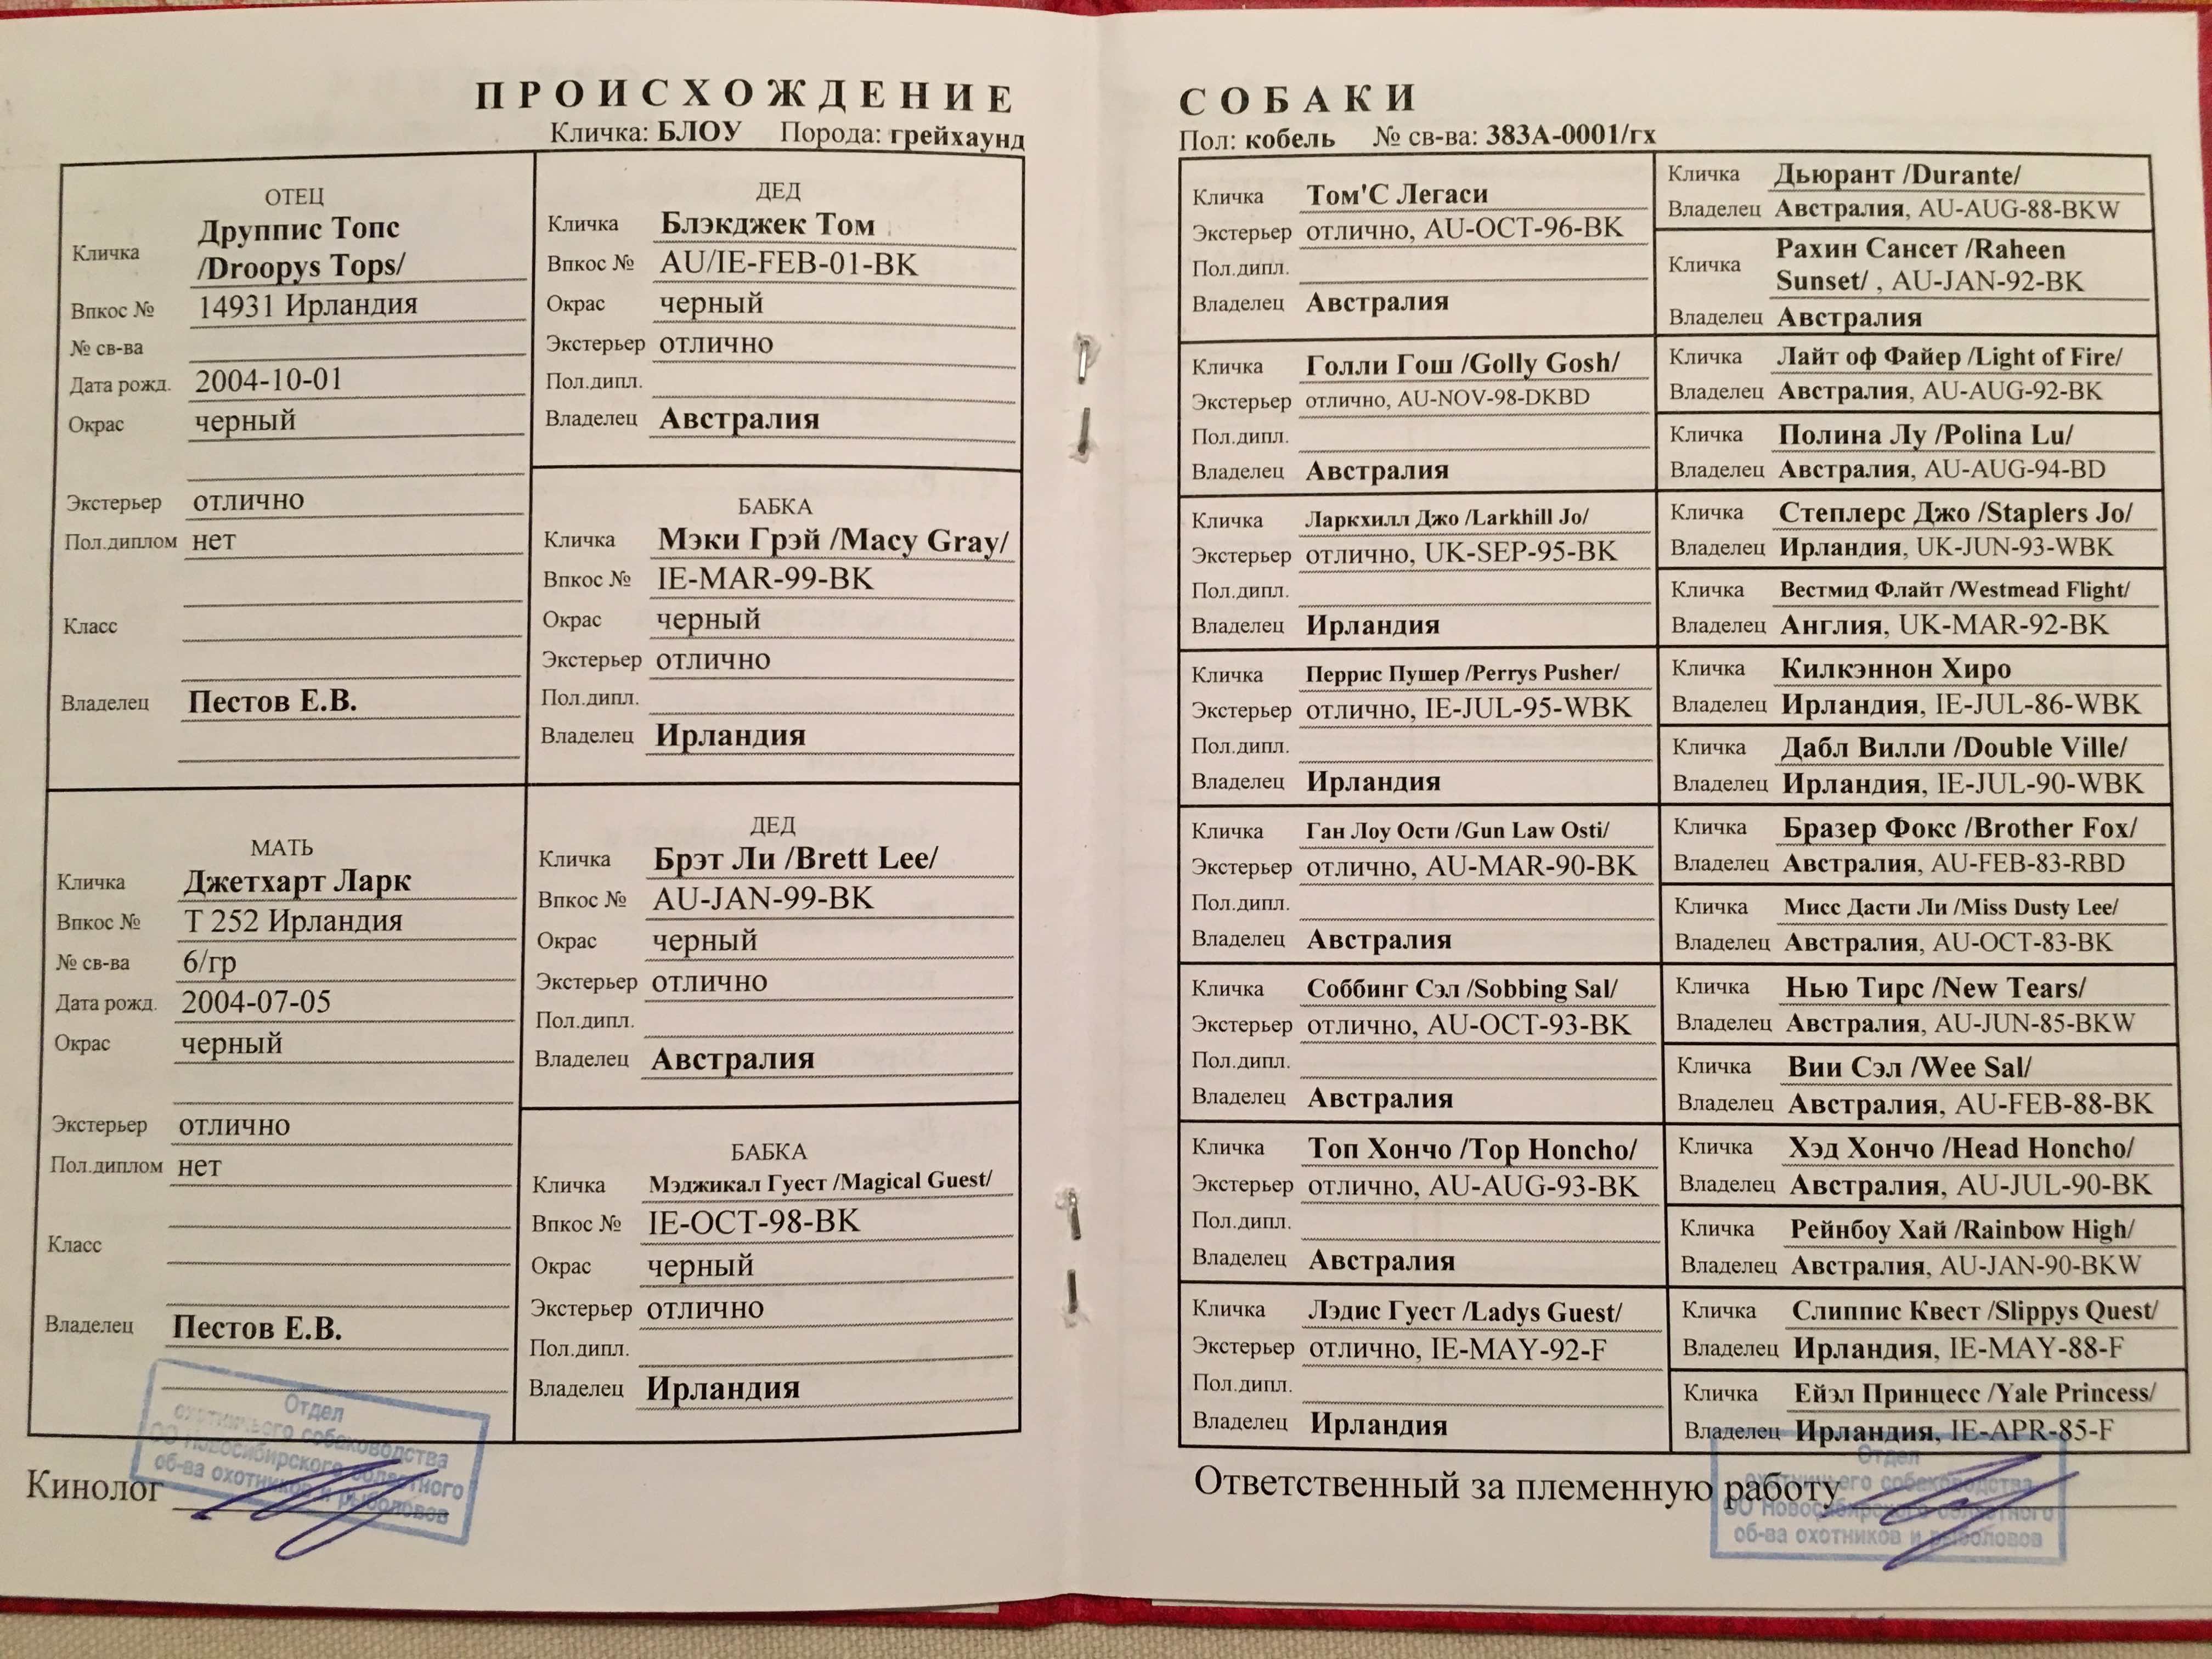 ПРОИСХОЖДЕНИЕ
Кличка: БЛОУ Порода: грейхаунд
ОТЕЦ
Кличка Друппис Топс
/Droopys Tops/
Впкос № 14931 Ирландия
№ св-ва
Дата рожд. 2004-10-01
Окрас черный
Экстерьер отлично
Пол.диплом нет
Класс
Владелец Пестов Е.В.
МАТЬ
Кличка Джетхарт Ларк
Впкос № Т 252 Ирландия
№ св-ва 6/гр
Дата рожд. 2004-07-05
Окрас черный
Экстерьер отлично
Пол.диплом нет
Класс
Владелец Пестов Е.В.
ДЕД
Кличка Блэкджек Том
Впкос № AU/IE-FEB-01-BK
Окрас черный
Экстерьер отлично
Пол.дипл.
Владелец Австралия
БАБКА
Кличка Мэки Грэй /Macy Gray/
Впкос № IE-MAR-99-BK
Окрас черный
Экстерьер отлично
Пол.дипл.
Владелец Ирландия
ДЕД
Кличка Брэт Ли /Brett Lee/
Впкос № AU-JAN-99-BK
Окрас черный
Экстерьер отлично
Пол.дипл.
Владелец Австралия
БАБКА
Кличка Мэджикал Гуест /Magical Guest/
Впкос № IE-OCT-98-BK
Окрас черный
Экстерьер отлично
Пол.дипл.
Владелец Ирландия
Кинолог
Отдел
охотничьего собаководства
ОО Новосибирского областного
об-ва охотников и рыболовов
СОБАКИ
Пол: кобель № св-ва: 383А-0001/гх
Кличка Том'С Легаси
Экстерьер отлично, AU-OCT-96-BK
Пол.дипл.
Владелец Австралия
Кличка Голли Гош /Golly Gosh/
Экстерьер отлично, AU-NOV-98-DKBD
Пол.дипл.
Владелец Австралия
Кличка Ларкхилл Джо /Larkhill Jo/
Экстерьер отлично, UK-SEP-95-BK
Пол.дипл.
Владелец Ирландия
Кличка Перрис Пушер /Perrys Pusher/
Экстерьер отлично, IE-JUL-95-WBK
Пол.дипл.
Владелец Ирландия
Кличка Ган Лоу Ости /Gun Law Osti/
Экстерьер отлично, AU-MAR-90-BK
Пол.дипл.
Владелец Австралия
Кличка Соббинг Сэл /Sobbing Sal/
Экстерьер отлично, AU-OCT-93-BK
Пол.дипл.
Владелец Австралия
Кличка Топ Хончо /Top Honcho/
Экстерьер отлично, AU-AUG-93-BK
Пол.дипл.
Владелец Австралия
Кличка Лэдис Гуест /Ladys Guest/
Экстерьер отлично, IE-MAY-92-F
Пол.дипл.
Владелец Ирландия
Кличка Дьюрант /Durante/
Владелец Австралия, AU-AUG-88-BKW
Кличка Рахин Сансет /Raheen
Sunset/ , AU-JAN-92-BK
Владелец Австралия
Кличка Лайт оф Файер /Light of Fire/
Владелец Австралия, AU-AUG-92-BK
Кличка Полина Лу /Polina Lu/
Владелец Австралия, AU-AUG-94-BD
Кличка Степлерс Джо /Staplers Jo/
Владелец Ирландия, UK-JUN-93-WBK
Кличка Вестмид Флайт /Westmead Flight/
Владелец Англия, UK-MAR-92-BK
Кличка Килкэннон Хиро
Владелец Ирландия, IE-JUL-86-WBK
Кличка Дабл Вилли /Double Ville/
Владелец Ирландия, IE-JUL-90-WBK
Кличка Бразер Фокс /Brother Fox/
Владелец Австралия, AU-FEB-83-RBD
Кличка Мисс Дасти Ли /Miss Dusty Lee/
Владелец Австралия, AU-OCT-83-BK
Кличка Нью Тирс /New Tears/
Владелец Австралия, AU-JUN-85-BKW
Кличка Вии Сэл /Wee Sal/
Владелец Австралия, AU-FEB-88-BK
Кличка Хэд Хончо /Head Honcho/
Владелец Австралия, AU-JUL-90-BK
Кличка Рейнбоу Хай /Rainbow High/
Владелец Австралия, AU-JAN-90-BKW
Кличка Слиппис Квест /Slippys Quest/
Владелец Ирландия, IE-MAY-88-F
Кличка Ейэл Принцесс /Yale Princess/
Владелец Ирландия, IE-APR-85-F
Ответственный за племенную работу
Отдел
охотничьего собаководства
ОО Новосибирского областного
об-ва охотников и рыболовов